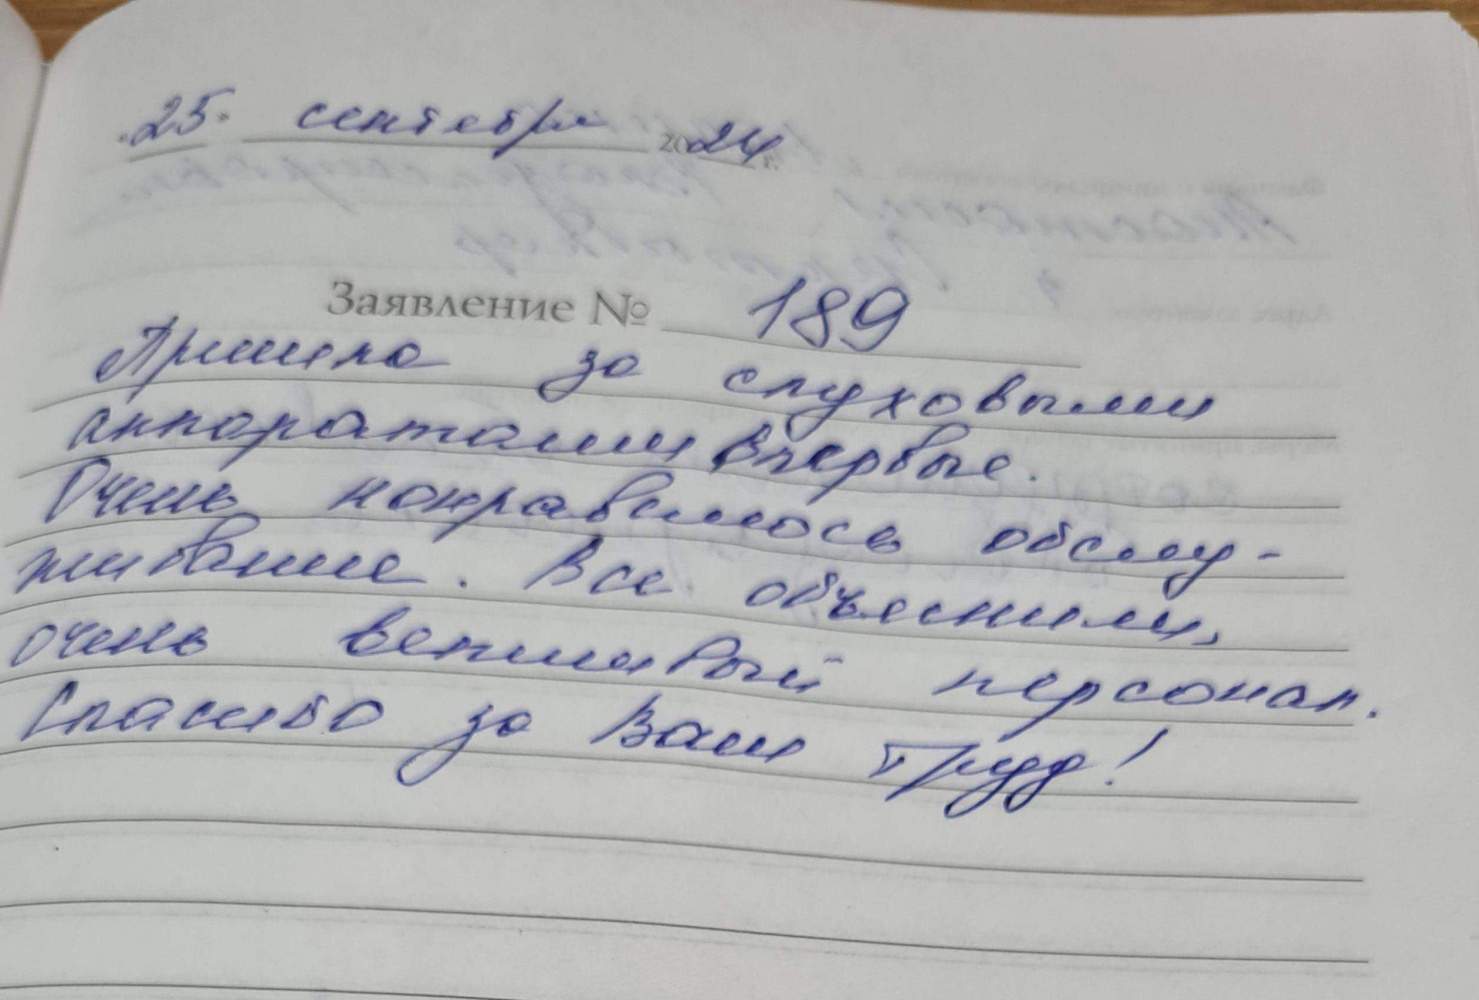 25 сентября 2024 г.
Заявление № 189
Пришла за слуховыми
аппаратами впервые.
Очень понравилось обслу-
живание. Все объяснили,
очень вежливый персонал.
Спасибо за Ваш труд!